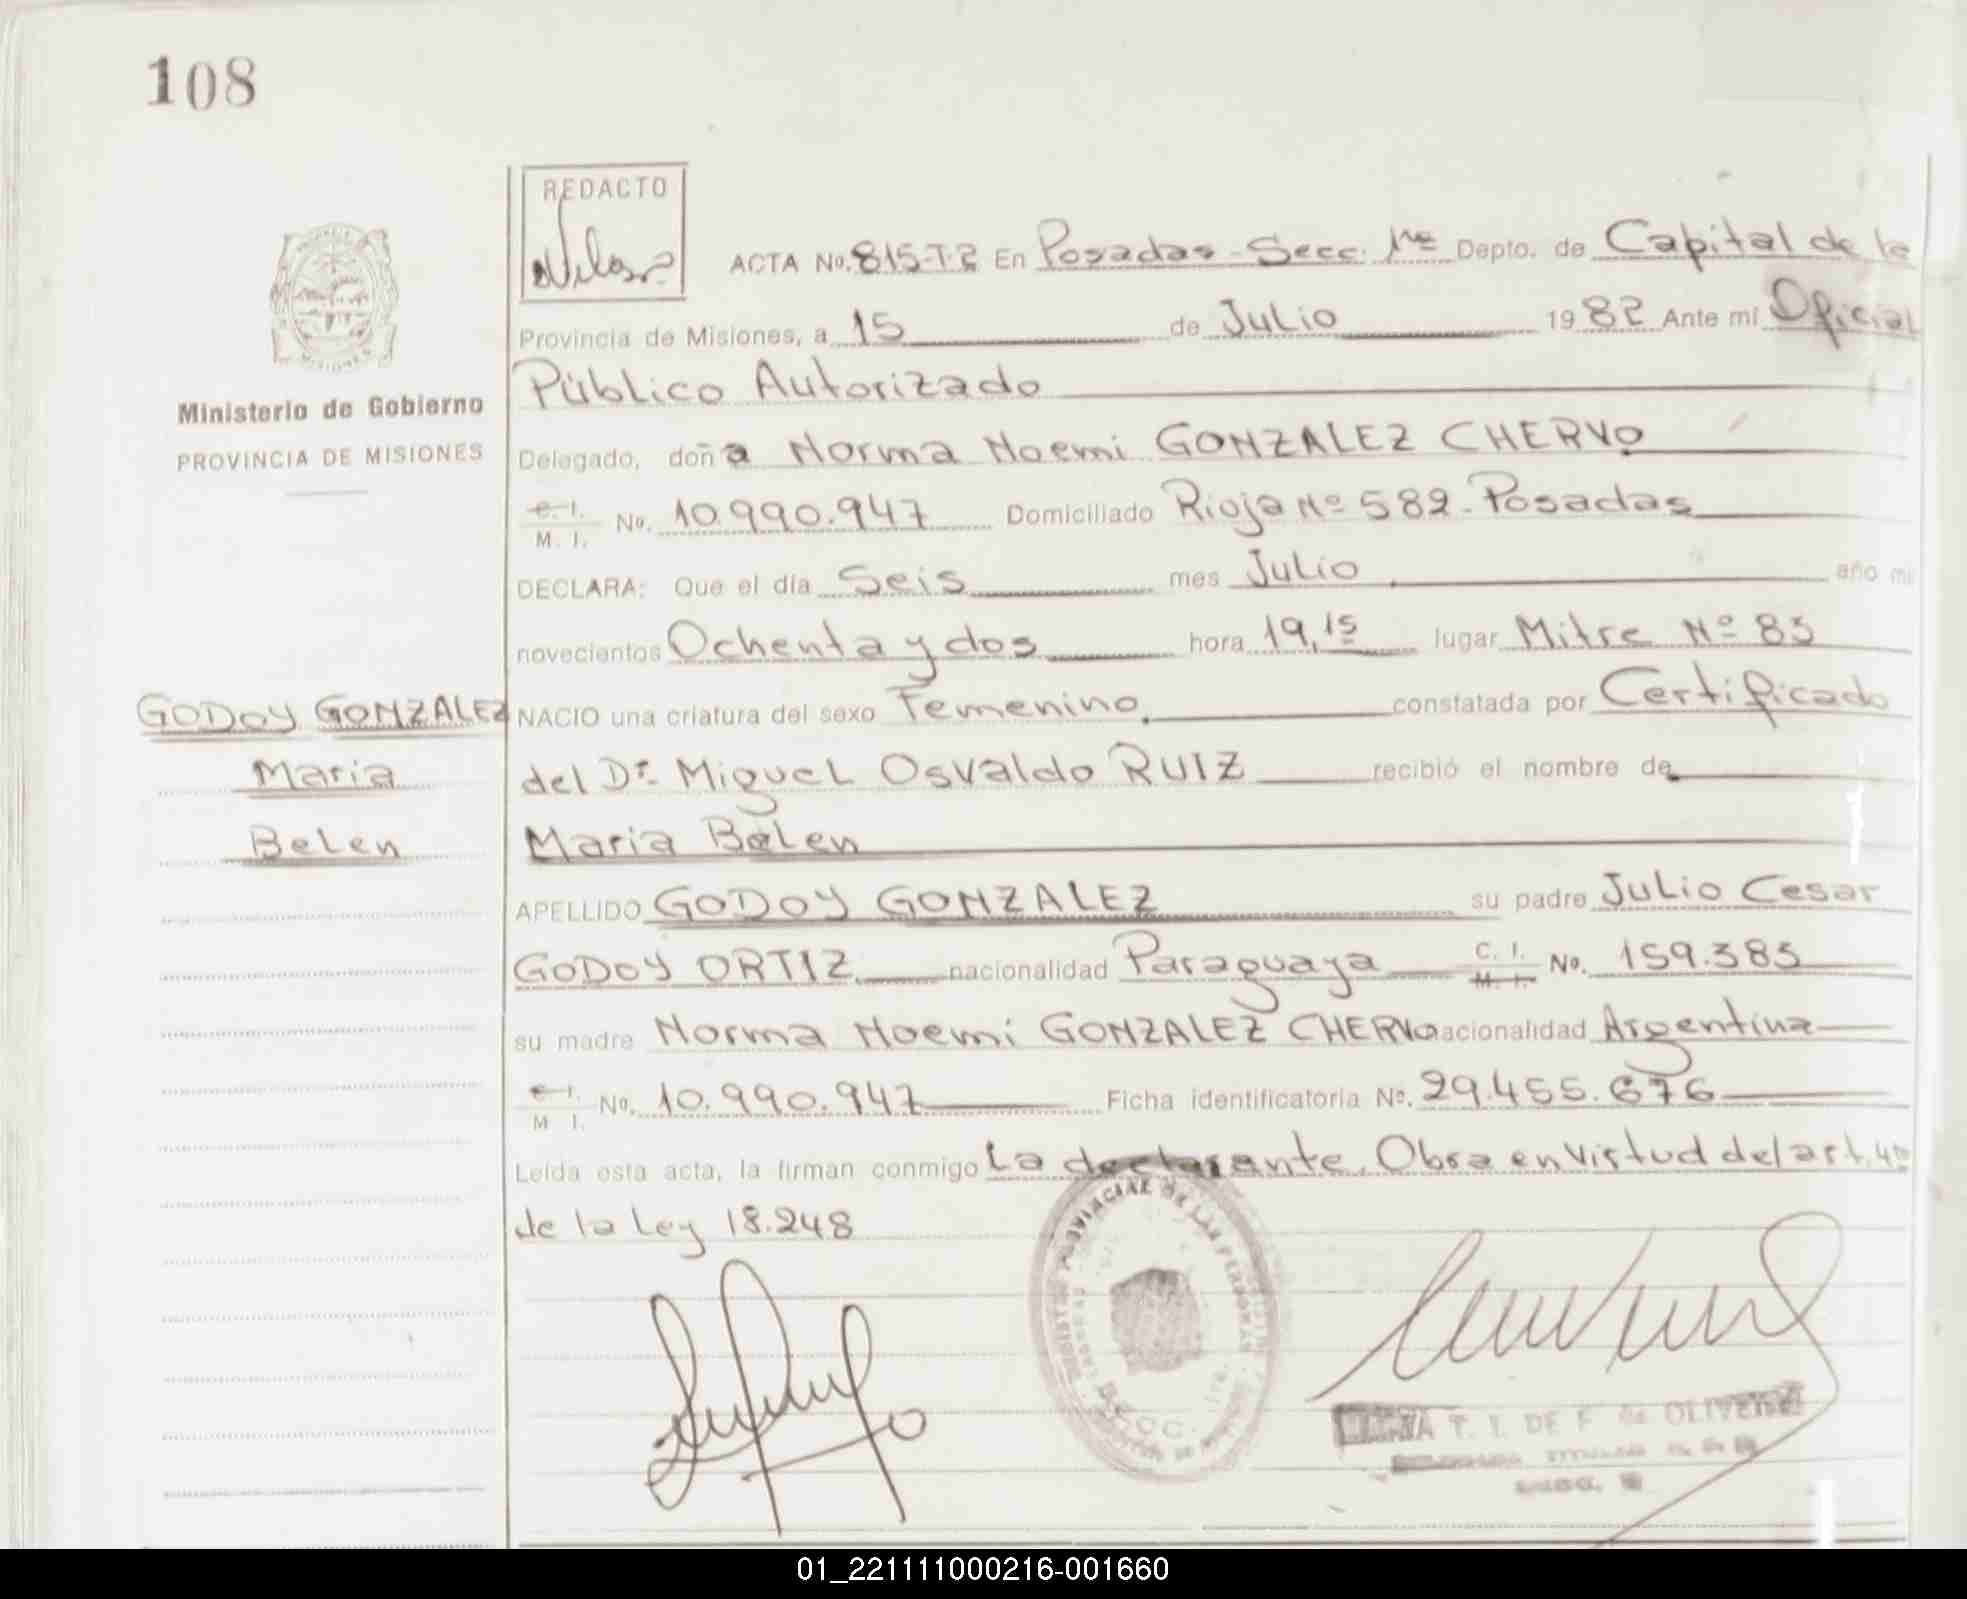 108
REDACTO
ACTA No. 815-T-2 En Posadas - Secc. 1ra Depto. de Capital de la
Provincia de Misiones, a 15 de Julio 1982 Ante mi Oficial
Público Autorizado
Ministerio de Gobierno
PROVINCIA DE MISIONES
Delegado, doña Norma Noemi GONZALEZ CHERVO
C. I. M. I. No. 10.990.947 Domiciliado Rioja Nº 582 - Posadas
DECLARA: Que el día Seis mes Julio año mi
novecientos Ochenta y dos hora 19,15 lugar Mitre Nº 85
GODOY GONZALEZ
NACIO una criatura del sexo Femenino, constatada por Certificado
Maria
del Dr. Miguel Osvaldo RUIZ recibió el nombre de
Belen
Maria Belen
APELLIDO GODOY GONZALEZ su padre Julio Cesar
GODOY ORTIZ nacionalidad Paraguaya C. I. M. I. No. 159.385
su madre Norma Noemi GONZALEZ CHERVO nacionalidad Argentina
C. I. M I. No. 10.990.947 Ficha identificatoria Nº. 29.455.676
Leída esta acta, la firman conmigo La declarante. Obra en virtud del art. 4to
de la Ley 18.248
PROVINCIAL DE LAS PERSONAS
MARIA T. I. DE F. de OLIVERA
01_221111000216-001660